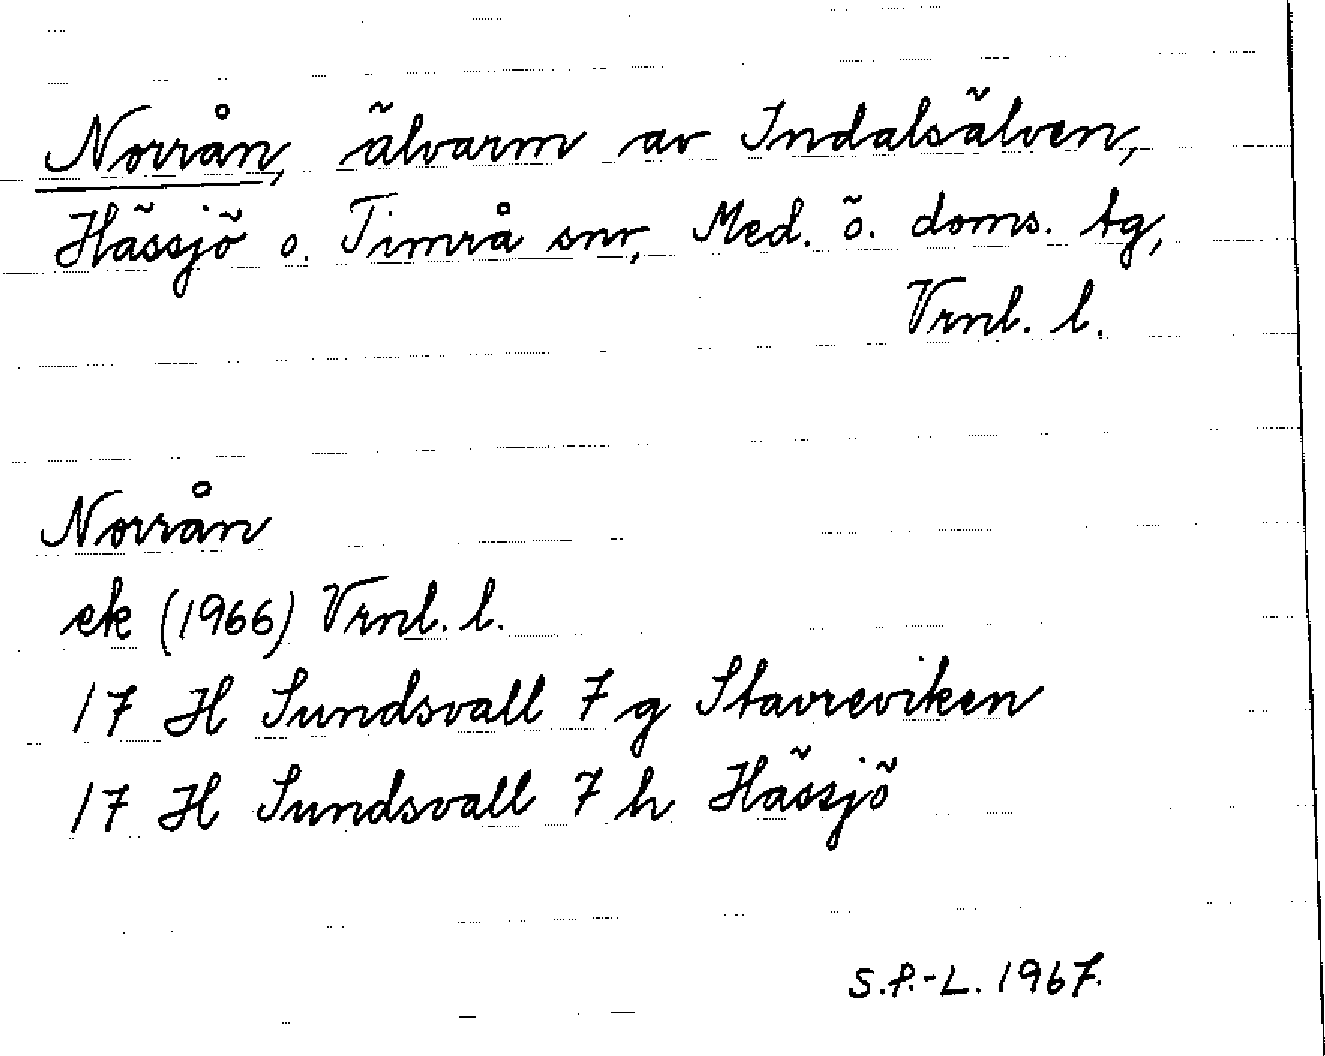 Norrån, älvarm av Indalsälven,
Hässjö o. Timrå snr, Med. ö. doms. tg,
Vrnl. l.
Norrån
ek (1966) Vrnl. l.
17 H Sundsvall 7 g Stavreviken
17 H Sundsvall 7 h Hässjö
S.P.-L. 1967.